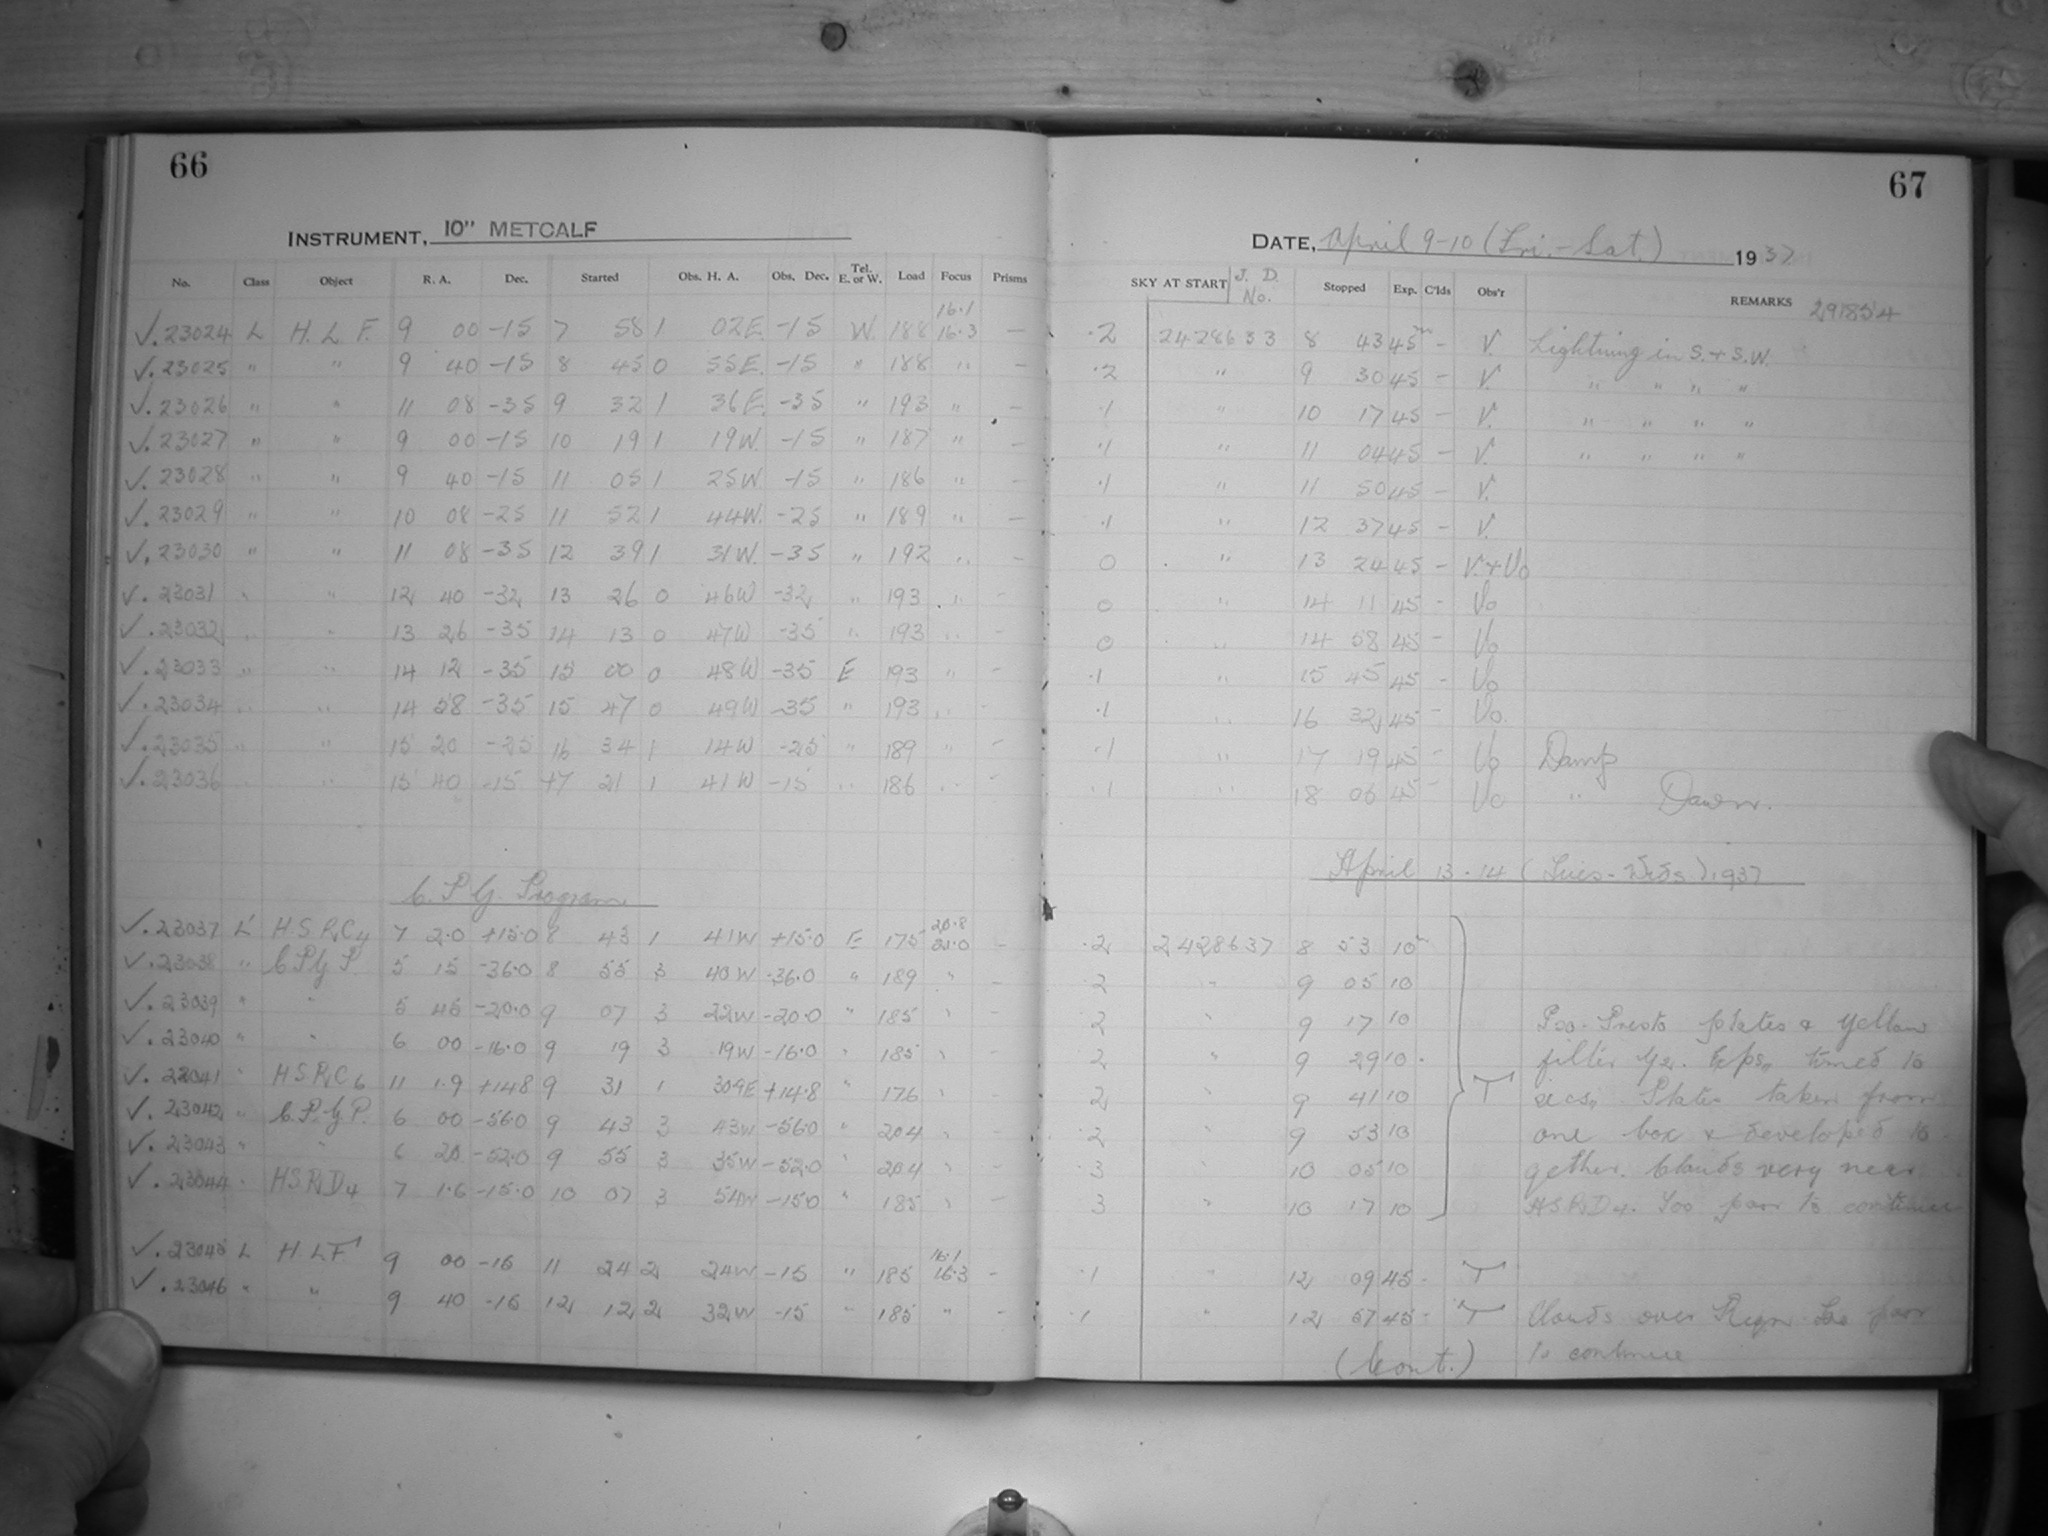 66
INSTRUMENT, 10" METCALF
No. Class Object R. A. Dec. Started Obs. H. A. Obs. Dec. Tel. E. or W. Load Focus Prisms
16.1
✓.23024 L H. L. F. 9 00 -15 7 58 1 02E. -15 W. 188 16.3 —
✓.23025 " " 9 40 -15 8 45 0 55E. -15 " 188 " —
✓.23026 " " 11 08 -35 9 32 1 36E. -35 " 193 " —
✓.23027 " " 9 00 -15 10 19 1 19W. -15 " 187 " —
✓.23028 " " 9 40 -15 11 05 1 25W. -15 " 186 " —
✓.23029 " " 10 08 -25 11 52 1 44W. -25 " 189 " —
✓.23030 " " 11 08 -35 12 39 1 31W. -35 " 192 " —
✓.23031 " " 12 40 -32 13 26 0 46W -32 " 193 " —
✓.23032 " " 13 26 -35 14 13 0 47W -35 " 193 " —
✓.23033 " " 14 12 -35 15 00 0 48W -35 E 193 " —
✓.23034 " " 14 58 -35 15 47 0 49W -35 " 193 " —
✓.23035 " " 15 20 -25 16 34 1 14W -25 " 189 " —
✓.23036 " " 15 40 -15 17 21 1 41W -15 " 186 " —
C. P. G. Program
20.8
✓.23037 L H S P, C4 7 2.0 +15.0 8 43 1 41W +15.0 E 175 21.0 —
✓.23038 " C P G P 5 15 -36.0 8 55 3 40W -36.0 " 189 " —
✓.23039 " " 5 45 -20.0 9 07 3 22W -20.0 " 185 " —
✓.23040 " " 6 00 -16.0 9 19 3 19W -16.0 " 185 "
✓.23041 " H S P, C6 11 1.9 +14.8 9 31 1 30.9E +14.8 " 176 "
✓.23042 " C. P. G. P. 6 00 -56.0 9 43 3 43W -56.0 " 204 " —
✓.23043 " " 6 20 -52.0 9 55 3 35W -52.0 " 204 " —
✓.23044 " H S P, D4 7 1.6 -15.0 10 07 3 54W -15.0 " 185 " —
16.1
✓.23045 L H. L F. 9 00 -15 11 24 2 24W -15 " 185 16.3 —
✓.23046 " " 9 40 -15 12 12 2 32W -15 " 185 " —
67
DATE, April 9-10 (Fri.-Sat.) 1937
SKY AT START J. D. No. Stopped Exp. C'lds Obs'r REMARKS 291854
.2 2428633 8 43 45m — V. Lightning in S. + S.W.
.2 " 9 30 45 — V. " " " "
.1 " 10 17 45 — V. " " " "
.1 " 11 04 45 — V. " " " "
.1 " 11 50 45 — V.
.1 " 12 37 45 — V.
0 " 13 24 45 — V. + Vo
0 " 14 11 45 — Vo
0 " 14 58 45 — Vo
.1 " 15 45 45 — Vo
.1 " 16 32 45 — Vo.
.1 " 17 19 45 — Vo Damp
.1 " 18 06 45 — Vo " Dawn.
April 13-14 (Tues-Weds) 1937
.2 2428637 8 53 10m
.2 " 9 05 10
.2 " 9 17 10 Iso-Presto plates & Yellow
.2 " 9 29 10 filter Y2. Exps. timed to
.2 " 9 41 10 T secs. Plates taken from
.2 " 9 53 10 one box & developed to
.3 " 10 05 10 gether. Clouds very near
3 " 10 17 10 H S P, D4. Too poor to continue
.1 " 12 09 45 — T
.1 " 12 57 45 — T Clouds over Region too poor
(Cont.) to continue